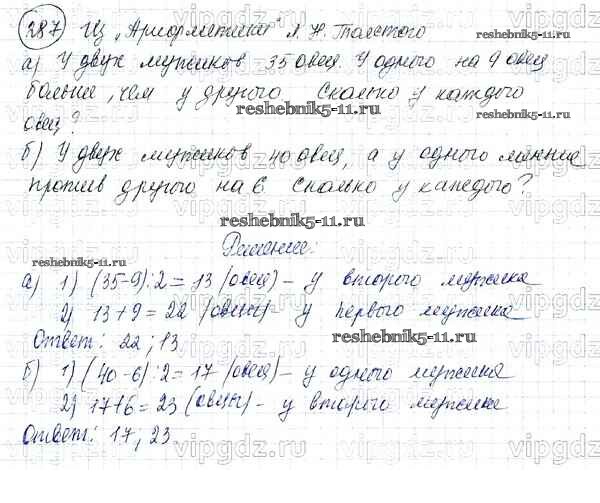 287 Из „Арифметики" Л. Н. Толстого
а) У двух мужиков 35 овец. У одного на 9 овец
больше, чем у другого. Сколько у каждого
reshebnik5-11.ru
овец?
б) У двух мужиков 40 овец, а у одного меньше
против другого на 6. Сколько у каждого?
reshebnik5-11.ru
Решение:
reshebnik5-11.ru
а) 1) (35-9):2 = 13 (овец) – у второго мужика
2) 13 + 9 = 22 (овцы) – у первого мужика
reshebnik5-11.ru
Ответ: 22; 13
б) 1) (40 - 6):2 = 17 (овец) – у одного мужика
2) 17+6 = 23 (овцы) – у второго мужика
Ответ: 17, 23
vipgdz.ru